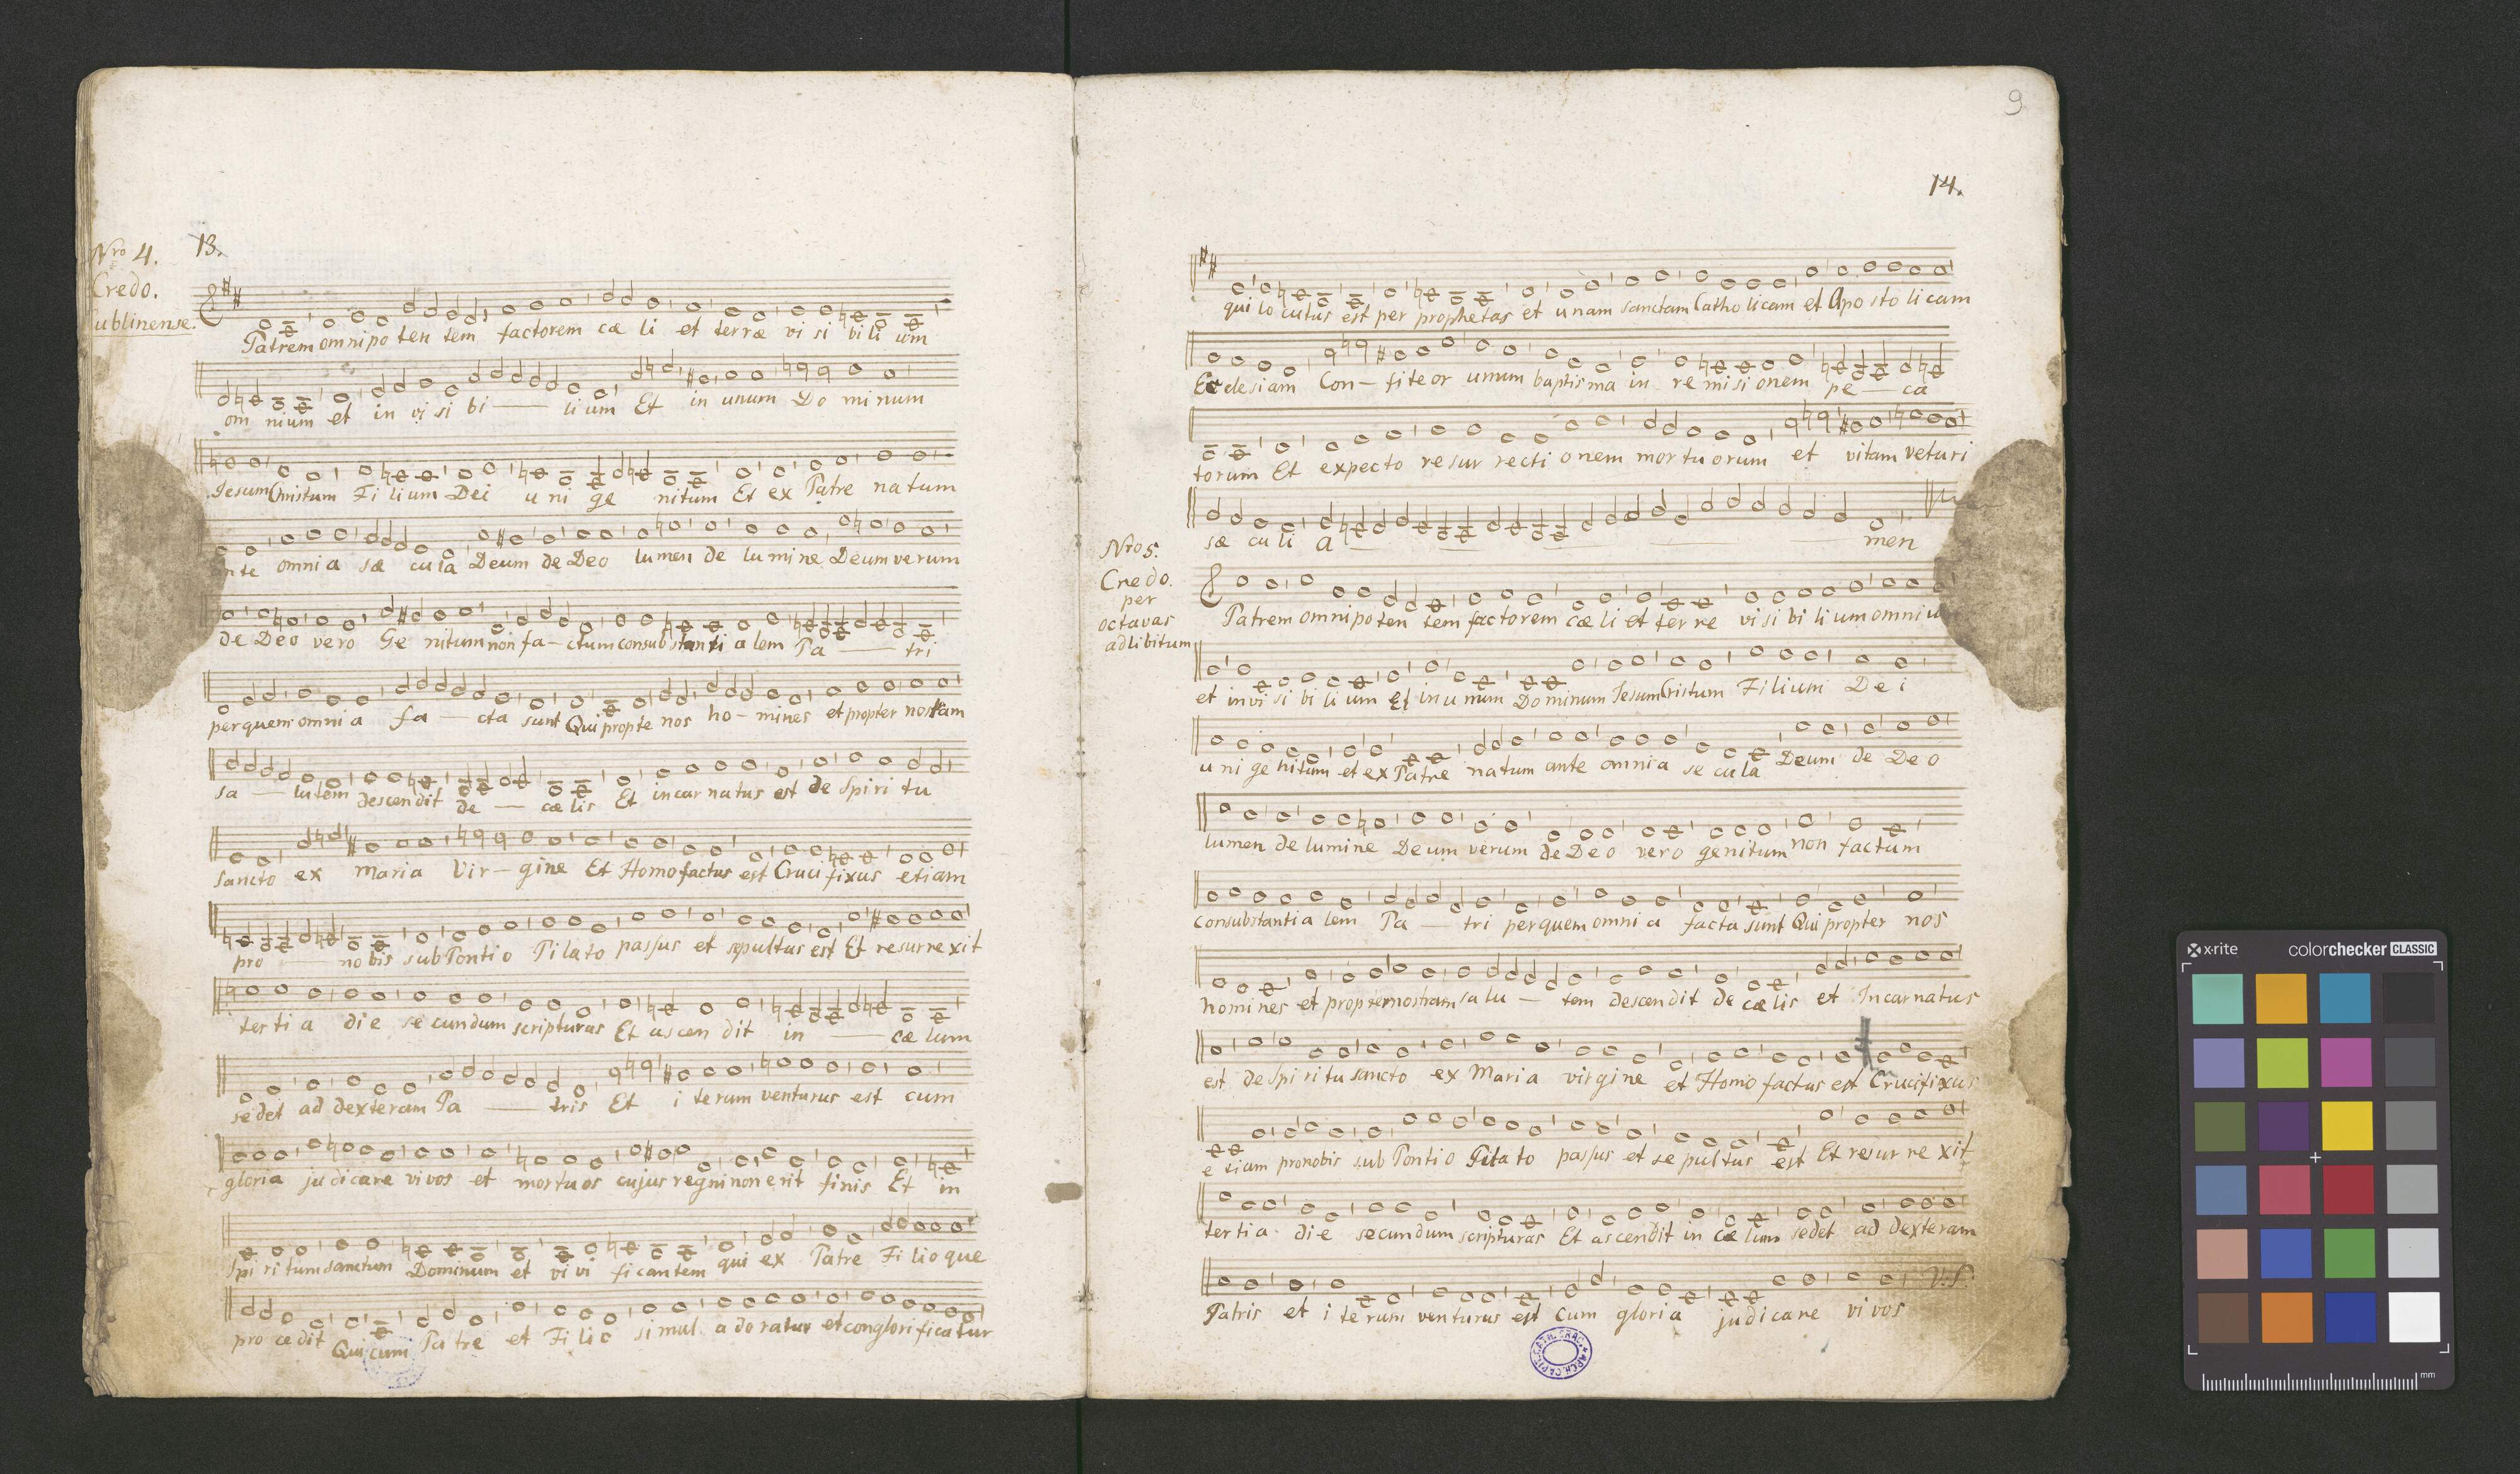 Nro 4.
13.
Credo.
ublinense.
Patrem omnipo ten tem factorem cæ li et terræ vi si bi li um
om nium et in vi si bi — li um Et in unum Do mi num
Jesum Christum Fi li um Dei u ni ge nitum Et ex Patre na tum
nte omni a sæ cu la Deum de Deo lu men de lu mi ne Deum verum
de Deo vero Ge nitum non fa — ctum consubstanti a lem Pa — tri
per quem omni a fa — cta sunt Qui propte nos ho — mines et propter nostram
sa — lutem descendit de — cæ lis Et incar na tus est de Spi ri tu
Sancto ex Maria Vir — gine Et Homo factus est Cruci fixus etiam
pro — no bis sub Ponti o Pi la to passus et sepultus est Et resurrexit
ter ti a di e se cundum scripturas Et ascen dit in — cæ lum
sedet ad dexteram Pa — tris Et i terum venturus est cum
gloria judicare vivos et mortuos cujus regni non erit finis Et in
Spi ri tum sanctum Dominum et vi vi ficantem qui ex Patre Fi lio que
pro cedit Qui cum Pa tre et Fi li o si mul a do ratur et conglorificatur
9
14.
qui lo cutus est per prophetas et unam sanctam Catho licam et Apo sto li cam
Ecclesiam Con — fiteor unum baptisma in re misi onem pe — ca
torum Et expecto resur recti onem mortuorum et vitam veturi
sæ cu li A — men
Nro 5.
Credo.
per
octavas
adlibitum
Patrem omnipoten tem factorem cæ li et ter re vi si bi li um omni u
et invi si bi li um Et in u num Dominum Jesum Cristum Filium De i
u ni ge nitum et ex Patre natum ante omnia se cula Deum de De o
lumen de lumine Deum verum de Deo vero genitum non factum
consubstantia lem Pa — tri per quem omni a facta sunt Qui propter nos
homines et propter nostram salu — tem descendit de cælis et Incarnatus
est de Spi ri tu sancto ex Maria virgine et Homo factus est Crucifixus
e tiam pronobis sub Pontio Pilato passus et se pultus est Et resur re xit
tertia die secundum scripturas Et ascendit in cæ lum sedet ad dexteram
Patris et i te rum venturus est cum gloria judicare vi vos
V: S:
x·rite colorchecker CLASSIC
mm